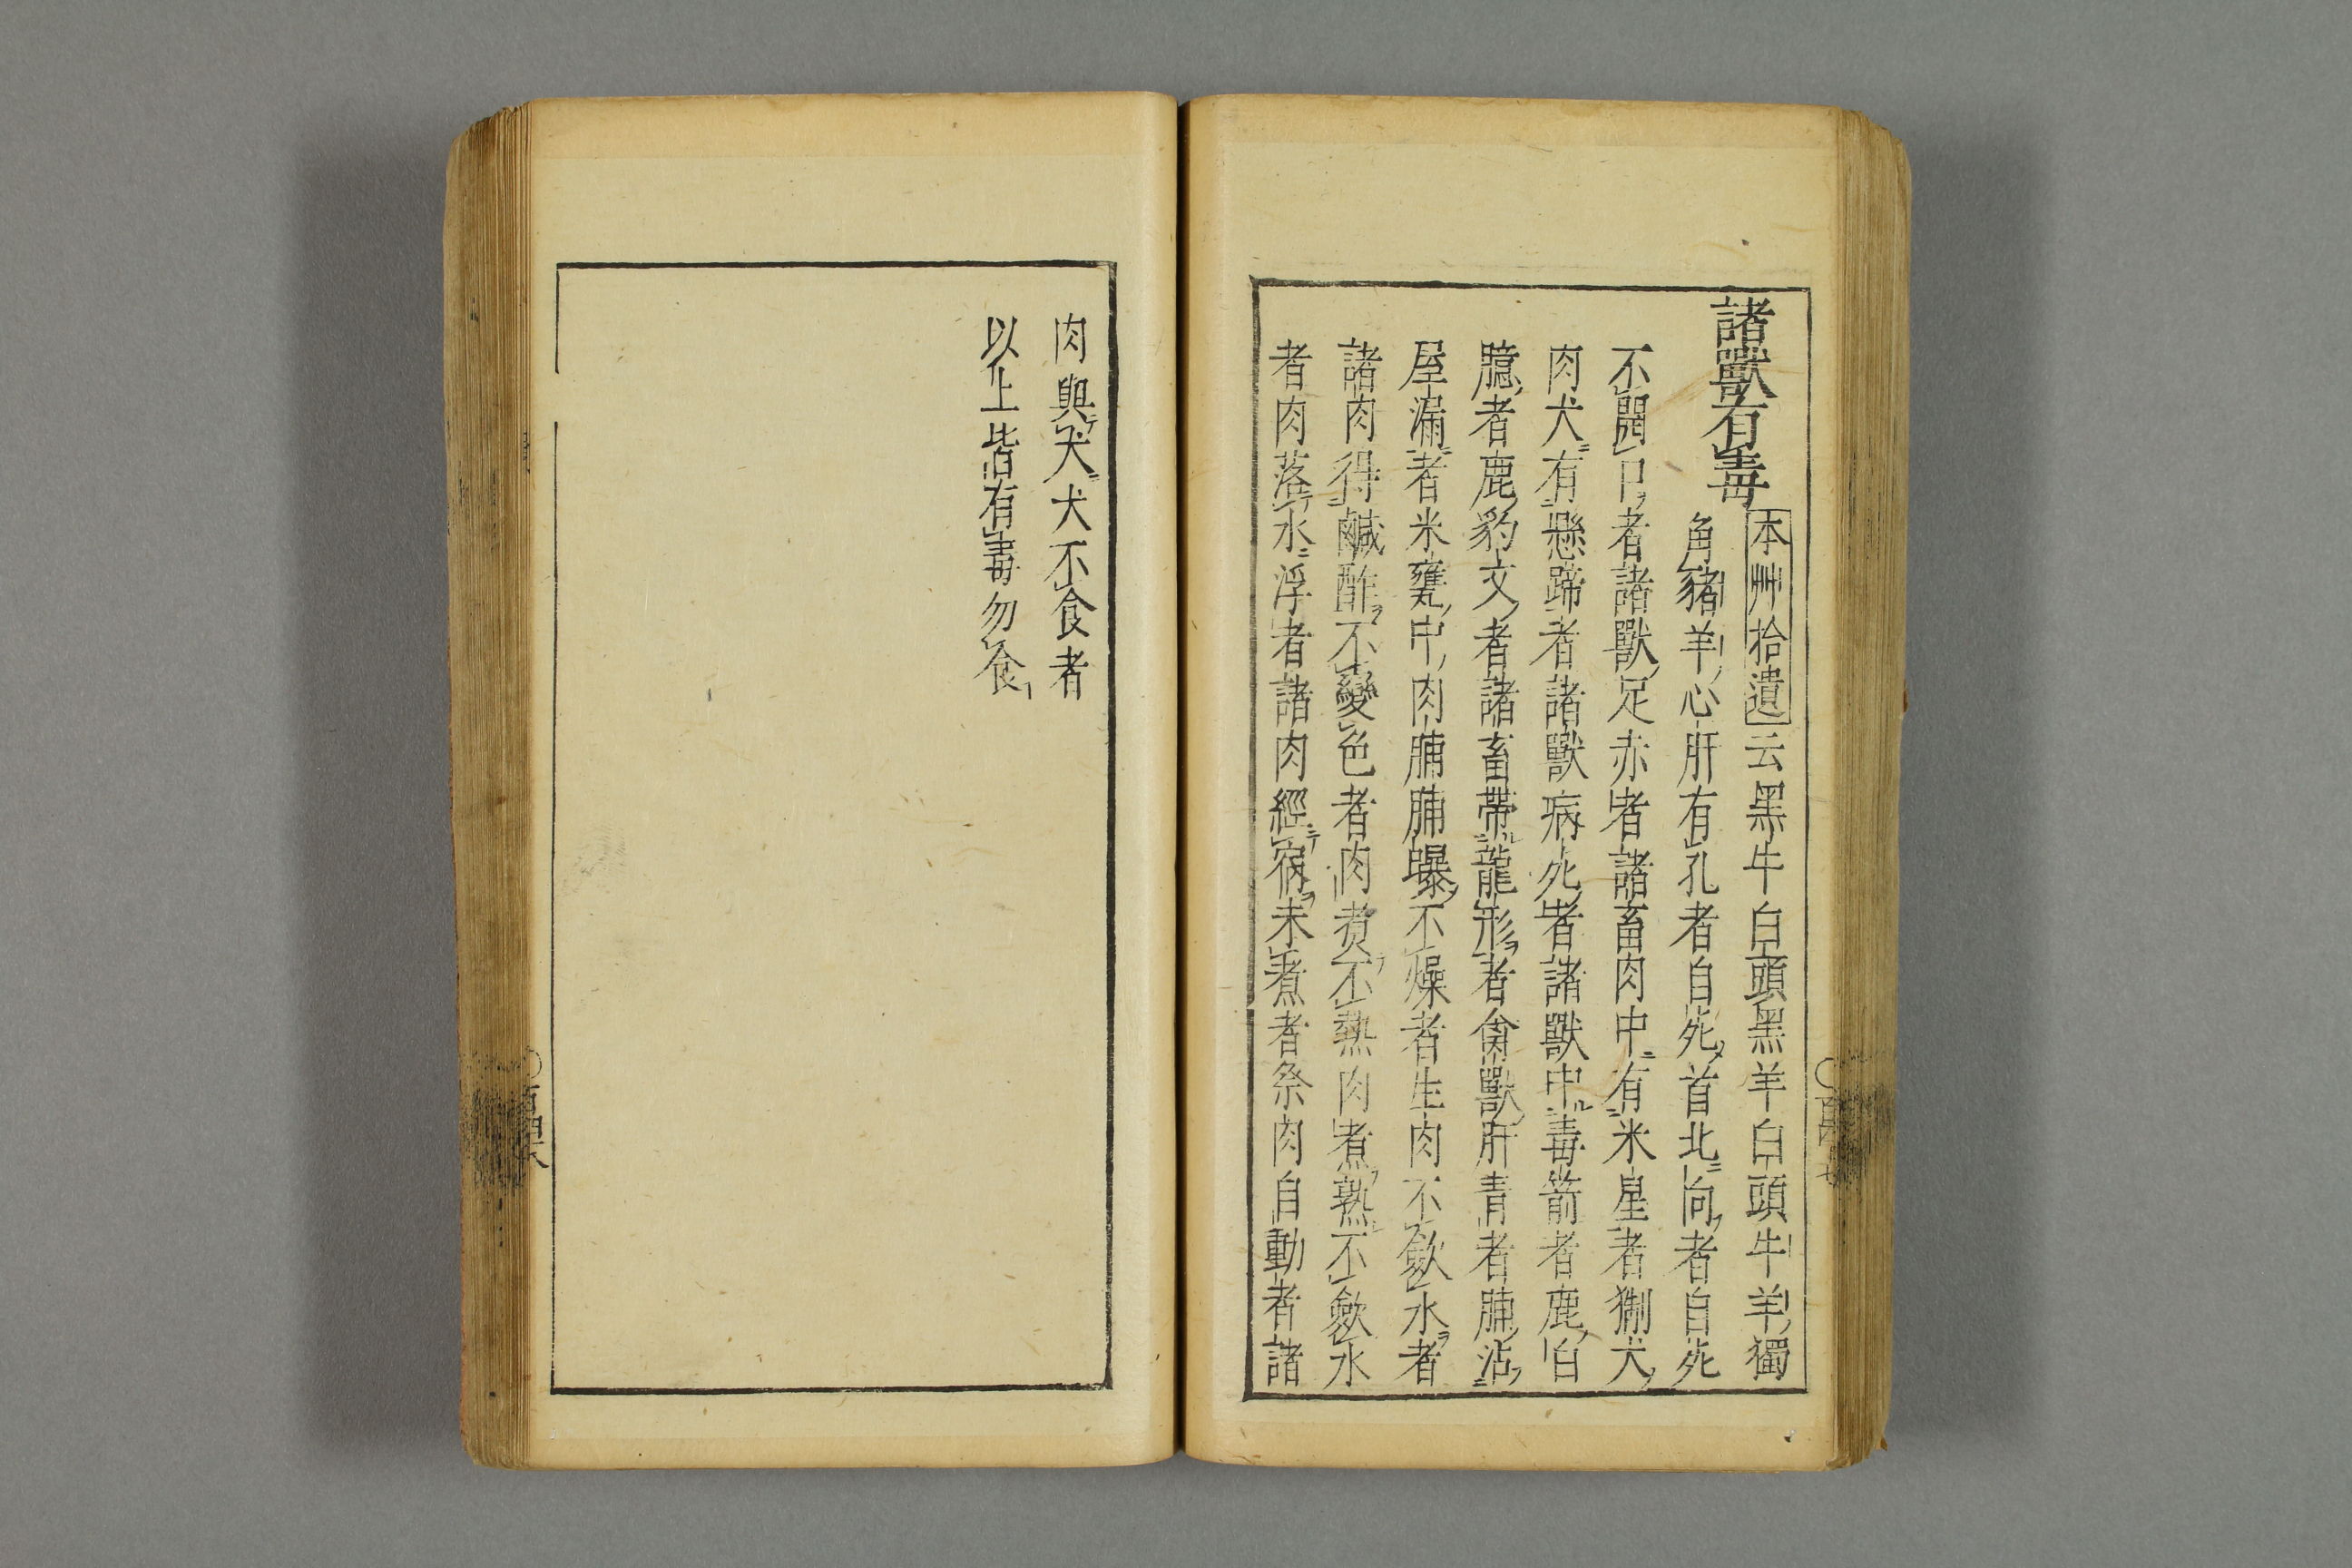 諸獸有毒
本艸拾遺云黑牛白頭黑羊白頭牛羊獨
角豬羊心肝有孔者自死首北向者自死
不閉口者諸獸足赤者諸畜肉中有米星者猘犬
肉犬有懸蹄者諸獸病死者諸獸中毒箭者鹿白
臆者鹿豹文者諸畜帶龍形者禽獸肝青者脯沾
屋漏者米甕中肉脯脯曝不燥者生肉不歛水者
諸肉得鹹酢不變色者肉煮不熱肉煮熟不歛水
者肉落水浮者諸肉經宿未煮者祭肉自動者諸
肉與犬犬不食者
以上皆有毒勿食